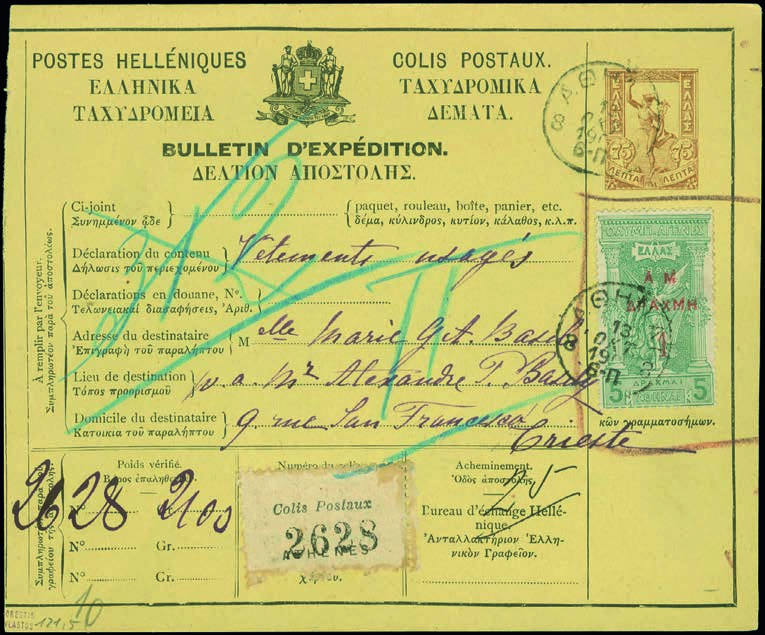 POSTES HELLÉNIQUES
ΕΛΛΗΝΙΚΑ
ΤΑΧΥΔΡΟΜΕΙΑ
COLIS POSTAUX.
ΤΑΧΥΔΡΟΜΙΚΑ
ΔΕΜΑΤΑ.
BULLETIN D'EXPÉDITION.
ΔΕΛΤΙΟΝ ΑΠΟΣΤΟΛΗΣ.
ΕΛΛΑΣ ΕΛΛΑΣ
75 75
ΛΕΠΤΑ ΛΕΠΤΑ
ΑΘΗ
8
6-Π
A remplir par l'envoyeur.
Συμπληρωτέον παρὰ τοῦ ἀποστολέως.
Ci-joint
Συνημμένον ὧδε
paquet, rouleau, boîte, panier, etc.
δέμα, κύλινδρος, κυτίον, κάλαθος, κ.λ.π.
Déclaration du contenu
Δήλωσις τοῦ περιεχομένου
Vetements usagés
Déclarations en douane, No.
Τελωνειακαὶ διασαφήσεις, Ἀριθ.
Adresse du destinataire
Ἐπιγραφὴ τοῦ παραλήπτου
Melle Marie G. A.
Lieu de destination
Τόπος προορισμοῦ
Mr Alexandre P.
Domicile du destinataire
Κατοικία τοῦ παραλήπτου
9 rue San Francesco
Trieste
ΕΛΛΑΣ
Α Μ
ΔΡΑΧΜΗ
1
5 ΔΡΑΧΜΑΙ 5
ΑΘΗΝΑΙ
ΑΘΗ
13
8
6-Π
κῶν γραμματοσήμων.
Poids vérifié.
Βάρος ἐπαληθευ
2628 2100
No Gr.
No Gr.
Numéro
Colis Postaux
2628
ATHENES
Acheminement.
Ὁδὸς ἀποστολῆς.
Bureau d'échange Hellé-
nique.
Ἀνταλλακτήριον Ἑλλη-
νικὸν Γραφεῖον.
ORESTIS
VLASTOS
121,5
10